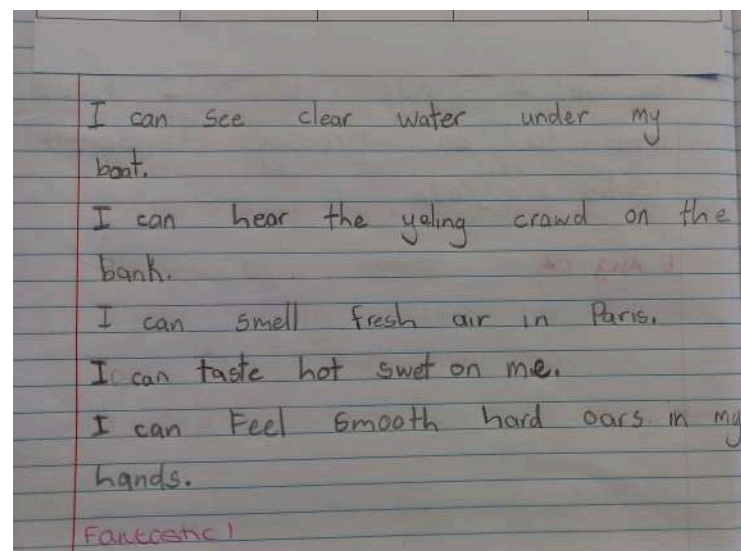 I can see clear water under my
boat.
I can hear the yeling crawd on the
bank.
I can smell fresh air in Paris.
I can taste hot swet on me.
I can Feel smooth hard oars in my
hands.
Fantastic!